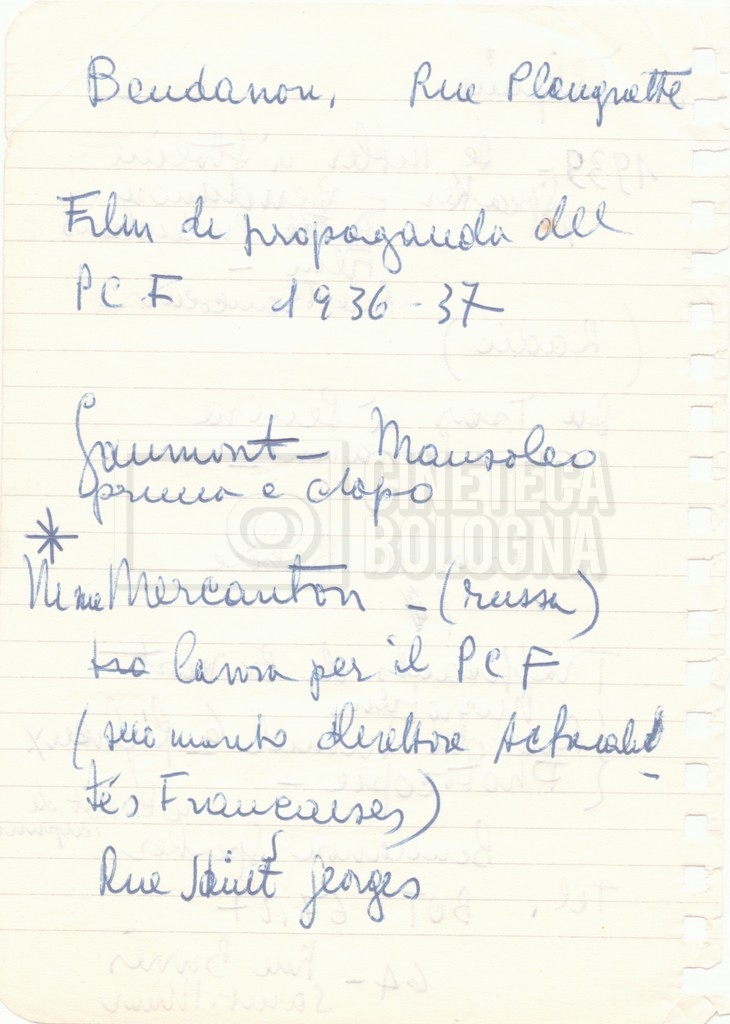 Bendanon, Rue Plangrette
Film di propaganda del
PCF 1936-37
Gaumont - Mausoleo
prima e dopo
CINETECA
BOLOGNA
*
Mme Mercanton - (russa)
lavora per il PCF
(suo marito direttore Actuali-
tés Françaises)
Rue Saint Georges